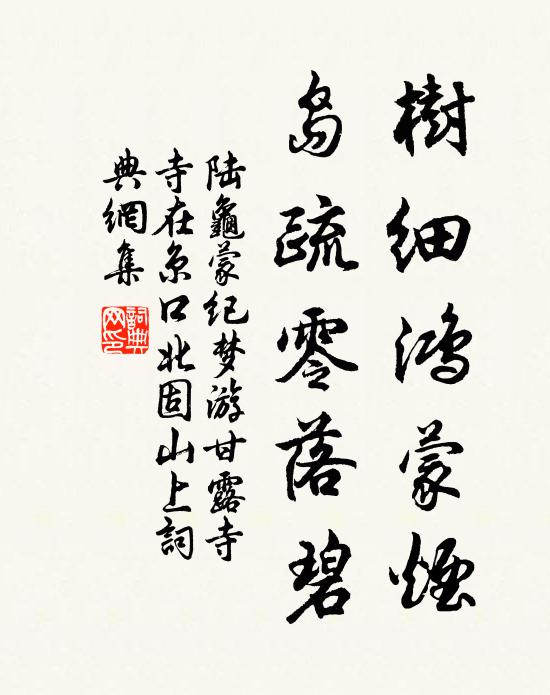 樹細鴻蒙煙
島疏零落碧
陆龜蒙纪梦游甘露寺
寺在京口北固山上詞
典網集
詞典
网印